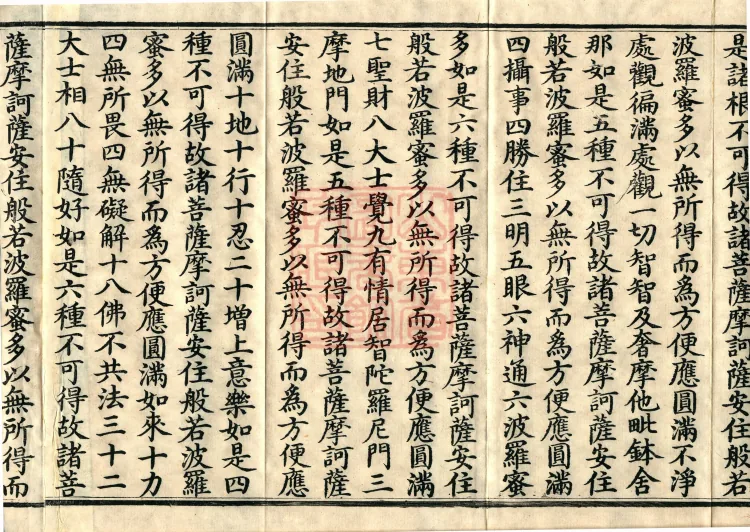 是諸相不可得故諸菩薩摩訶薩安住般若
波羅蜜多以無所得而爲方便應圓滿不淨
處觀徧滿處觀一切智智及奢摩他毗鉢舍
那如是五種不可得故諸菩薩摩訶薩安住
般若波羅蜜多以無所得而爲方便應圓滿
四攝事四勝住三明五眼六神通六波羅蜜
多如是六種不可得故諸菩薩摩訶薩安住
般若波羅蜜多以無所得而爲方便應圓滿
七聖財八大士覺九有情居智陀羅尼門三
摩地門如是五種不可得故諸菩薩摩訶薩
安住般若波羅蜜多以無所得而爲方便應
圓滿十地十行十忍二十增上意樂如是四
種不可得故諸菩薩摩訶薩安住般若波羅
蜜多以無所得而爲方便應圓滿如來十力
四無所畏四無礙解十八佛不共法三十二
大士相八十隨好如是六種不可得故諸菩
薩摩訶薩安住般若波羅蜜多以無所得而